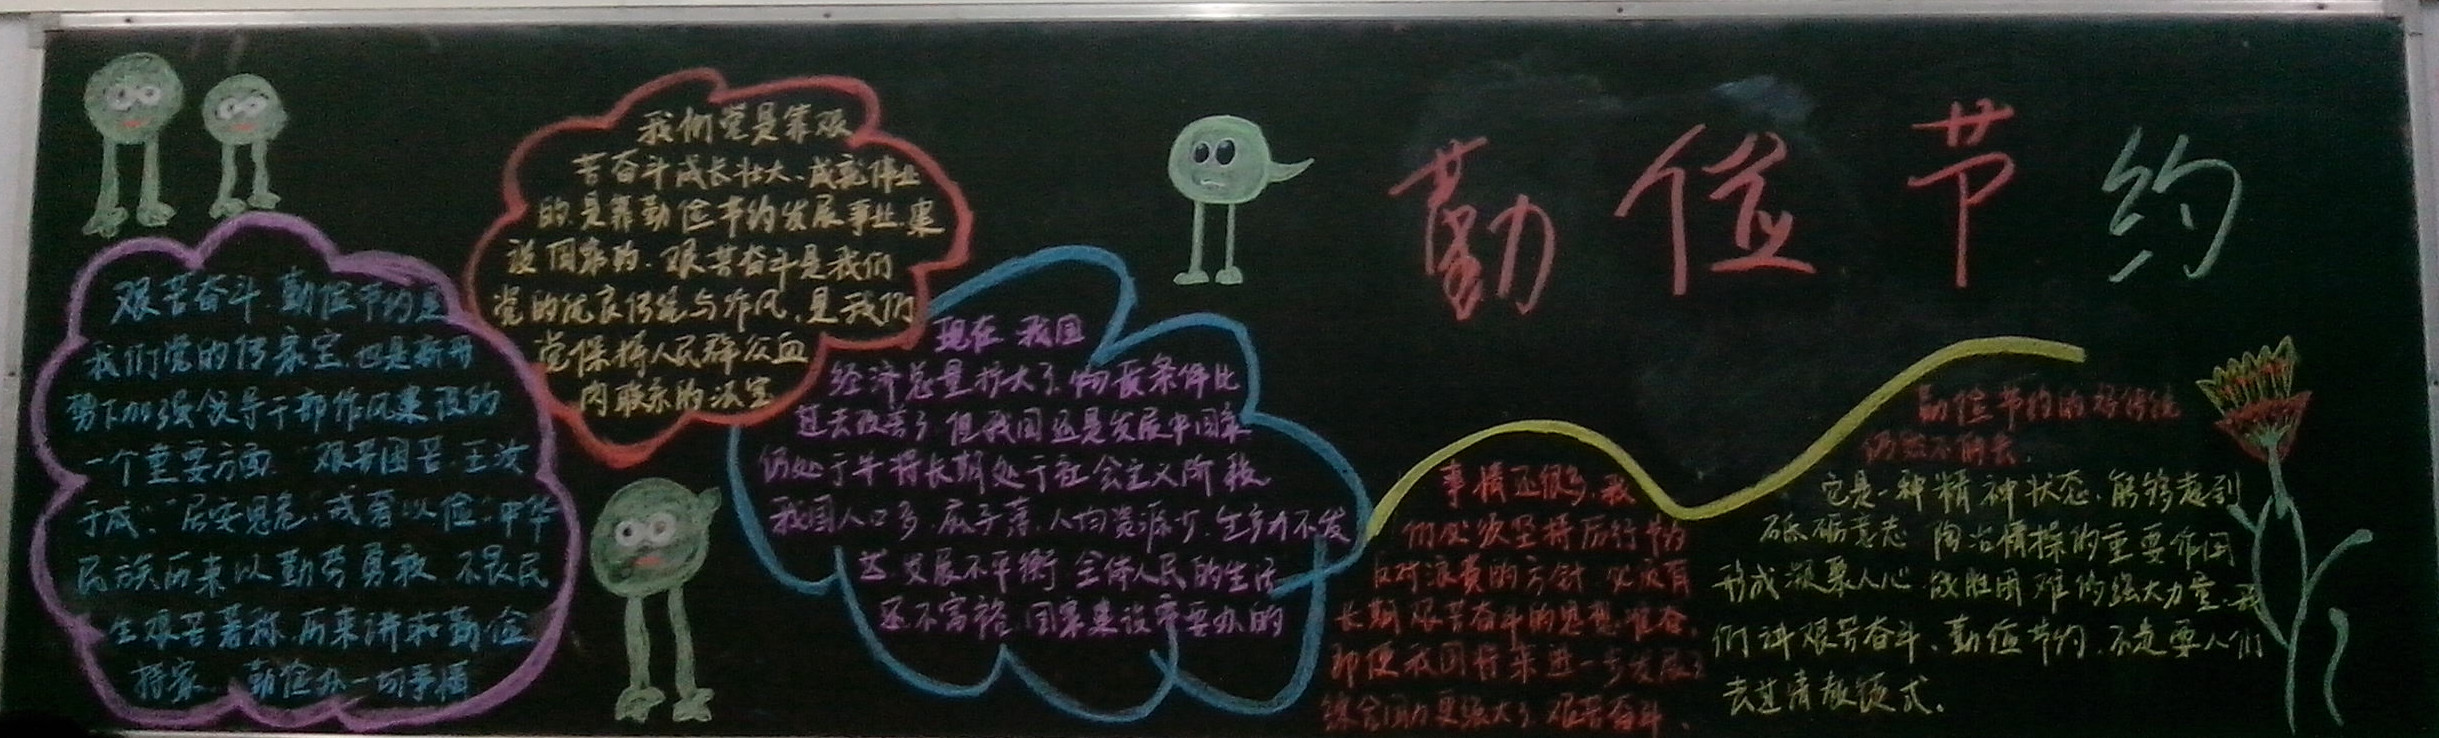 勤俭节约
艰苦奋斗、勤俭节约是
我们党的传家宝,也是新形
势下加强领导干部作风建设的
一个重要方面 "艰苦困苦,玉汝
于成","居安思危,戒奢以俭",中华
民族历来以勤劳勇敢 不畏民
生艰苦著称,历来讲求勤俭
持家、勤俭办一切事情
我们党是靠艰
苦奋斗成长壮大、成就伟业
的,是靠勤俭节约发展事业、建
设国家的。艰苦奋斗是我们
党的优良传统与作风,是我们
党保持人民群众血
肉联系的法宝
现在 我国
经济总量扩大了,物质条件比
过去改善了 但我国还是发展中国家
仍处于并将长期处于社会主义阶段
我国人口多、底子薄、人均资源少、生产力不发
达 发展不平衡 全体人民的生活
还不富裕 国家建设需要办的
事情还很多,我
们必须坚持厉行节约
反对浪费的方针 必须有
长期艰苦奋斗的思想准备,
即便我国将来进一步发展了
综合国力更强大了 艰苦奋斗、
勤俭节约的好传统
仍然不能丢。
它是一种精神状态,能够起到
砥砺意志 陶冶情操的重要作用
形成凝聚人心 战胜困难的强大力量,我
们讲艰苦奋斗、勤俭节约,不是要人们
去过清教徒式。